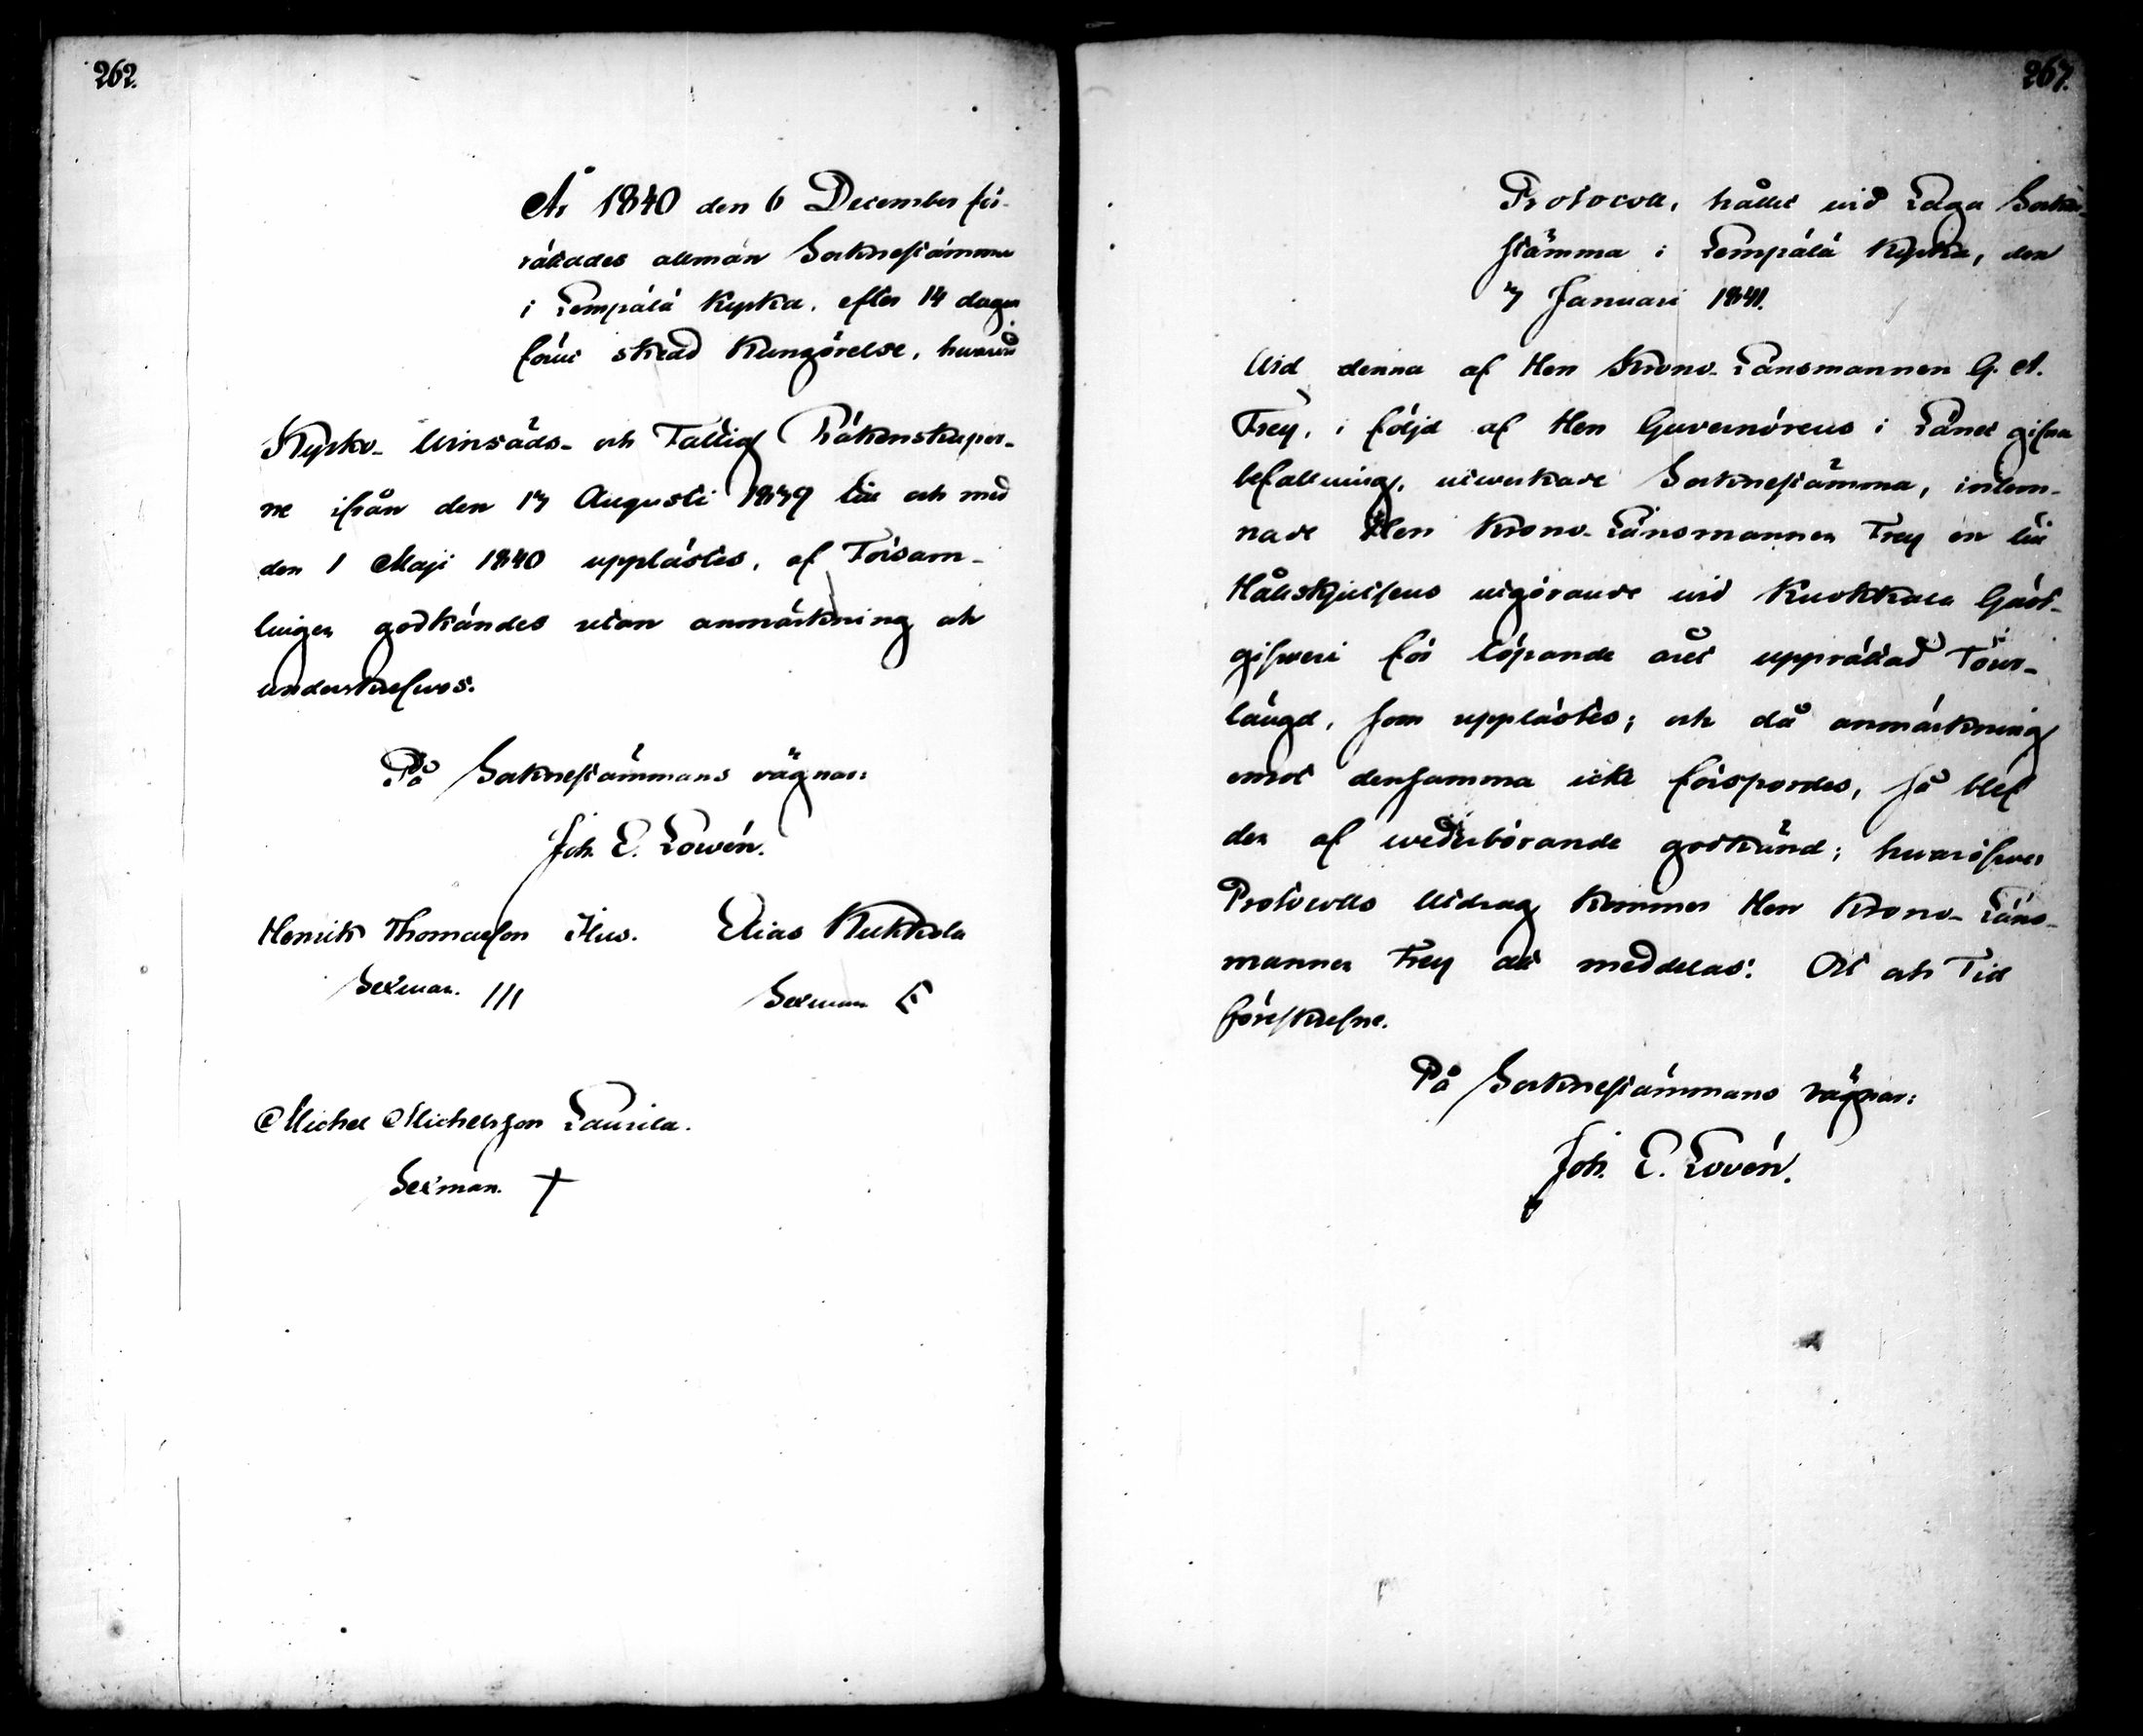 262.
År 1840 den 6 December för-
rättades allmän Socknestämma
i Lempälä Kyrka, efter 14 dagar
förut skedd Kungörelse, hwarwid
Kyrko- Winsäds- och Fattig Räkenskaper-
ne ifrån den 1 Augusti 1839 till och med
den 1 Maji 1840 upplästes, af Församl-
lingen godkändes utan anmärkning och
underskrefwos.
På Socknestämmans vägnar:
Joh. E. Lowén.
Henrik Thomasson Elias Kukkola
Sexman. III Sexman E
Michel Michelsson Laurila.
Sexman. +
267.
Protocoll, hållit wid Laga Sockne-
stämma i Lempälä Kyrka, den
7 Januari 1841.
Wid denna af Herr Krono-Länsmannen G. A.
Frey, i följd af Herr Guvernörens i Länet gifna
befallning, utwerkade Socknestämma, inlem-
nade Herr Krono-Länsmannen Frey en till
Hållskjutsens utgörande wid Kuokkala Gäst-
gifweri för löpande året upprättad Tour-
längd, som upplästes; och då anmärkning
emot densamma icke förspordes, så blef
den af wederbörande godkänd; hwaröfwer
Protocolls Utdrag kommer Herr Krono-Läns-
mannen Frey att meddelas. Ort och Tid
föreskrefne.
På Socknestämmans vägnar:
Joh. E. Lovén.